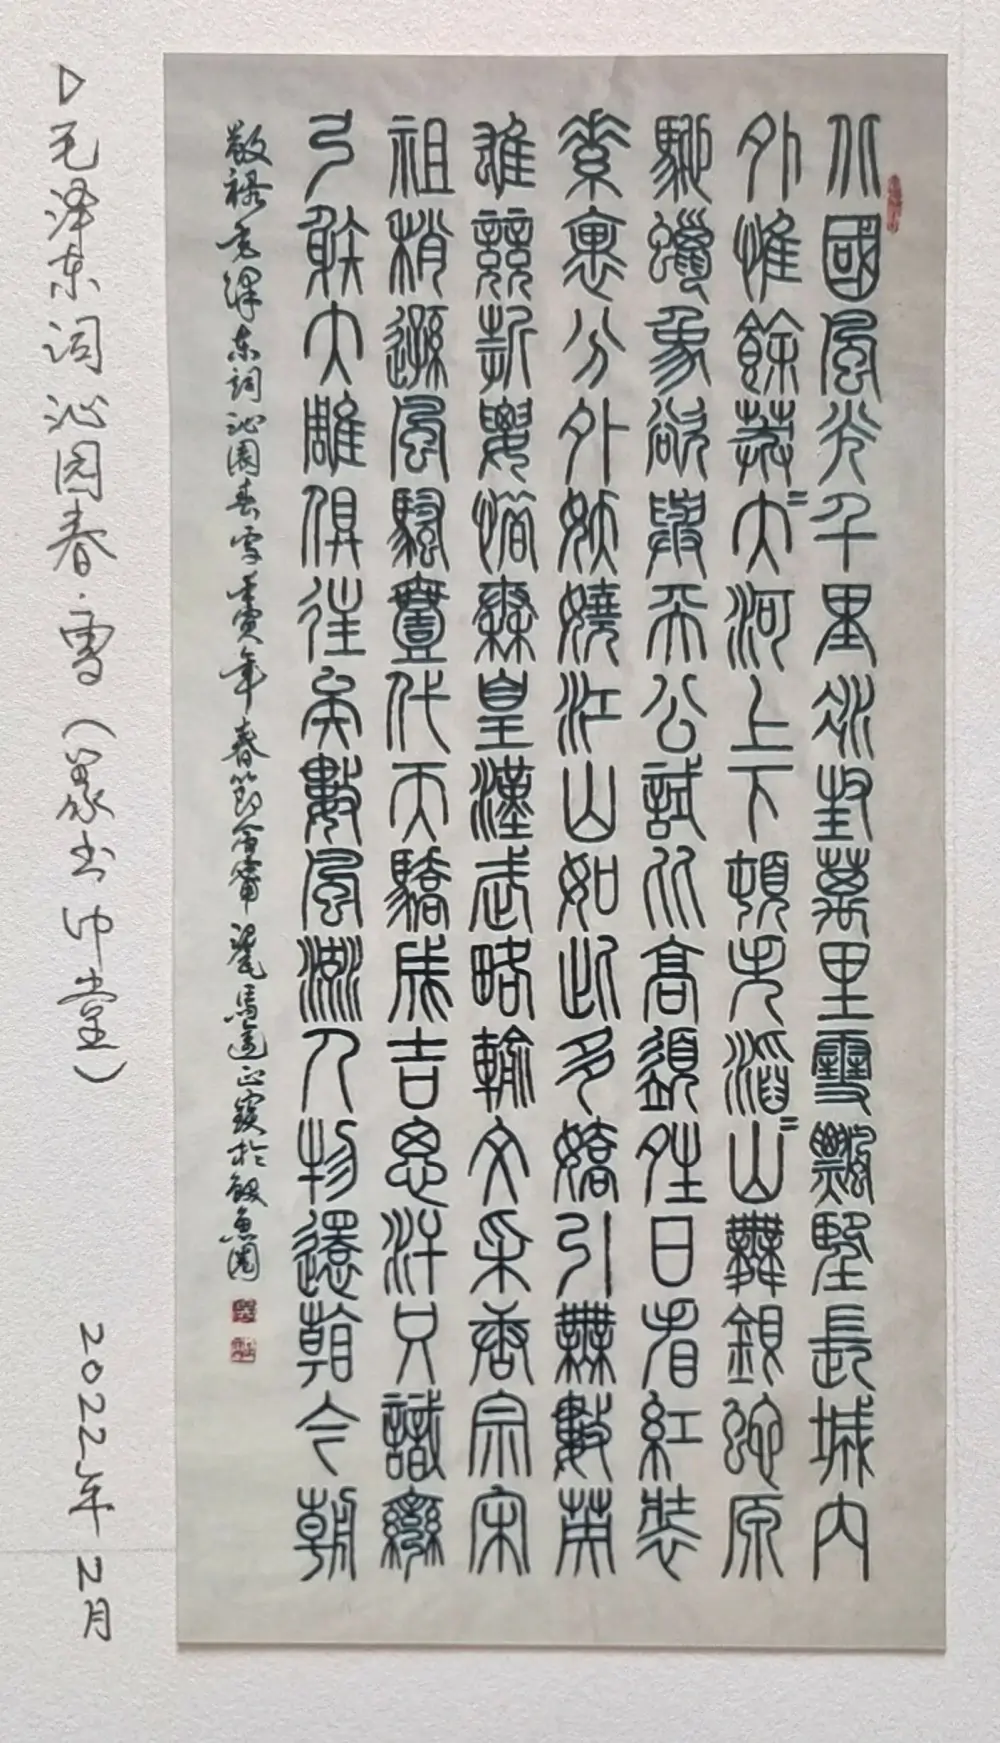 北國風光千里冰封萬里雪飄望長城內
外惟餘莽〻大河上下頓失滔〻山舞銀蛇原
馳蠟象欲與天公試比高須晴日看紅裝
素裹分外妖嬈江山如此多嬌引無數英
雄競折腰惜秦皇漢武略輸文采唐宗宋
祖稍遜風騷壹代天驕成吉思汗只識彎
弓射大雕俱往矣數風流人物還看今朝
敬錄毛澤東詞沁園春雪壬寅年春節會甯
▷毛泽东词沁园春·雪（篆书中堂） 2022年2月